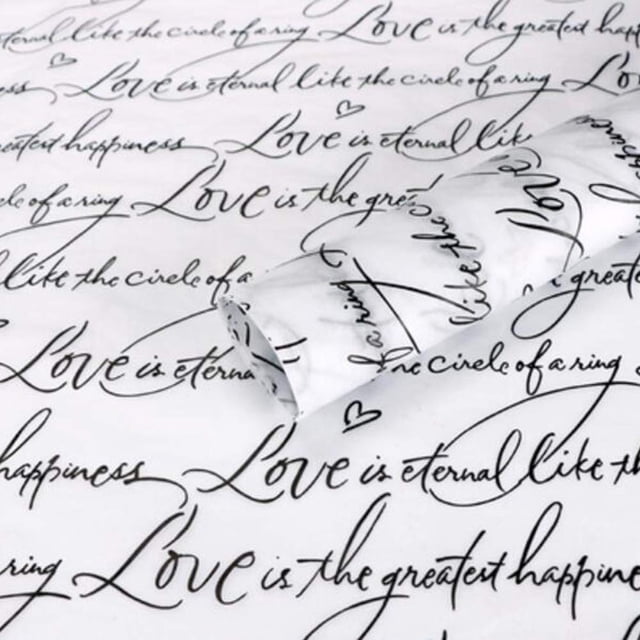 eternal like the circle of a ring Love is the greatest happ
ess Love is eternal like the circle of a ring Lo
greatest happiness Love is eternal lik
cle of a ring Love is the gre
like the circle of a greate
Love is eterna he circle of a ring
happiness Love is eternal like th
ring Love is the greatest happine